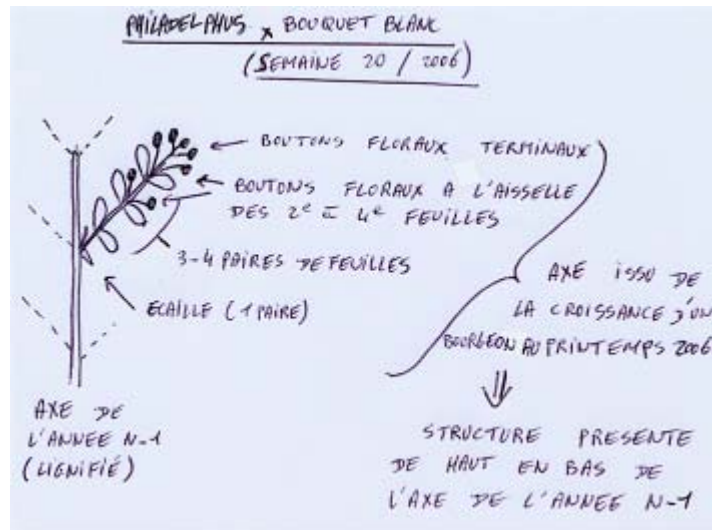 PHILADELPHUS x BOUQUET BLANC
(SEMAINE 20 / 2006)
BOUTONS FLORAUX TERMINAUX
BOUTONS FLORAUX A L'AISSELLE
DES 2e à 4e FEUILLES
3-4 PAIRES DE FEUILLES
ECAILLE (1 PAIRE)
AXE DE
L'ANNEE N-1
(LIGNIFIÉ)
AXE ISSO DE
LA CROISSANCE D'UN
BOURGEON AU PRINTEMPS 2006
STRUCTURE PRESENTE
DE HAUT EN BAS DE
L'AXE DE L'ANNEE N-1